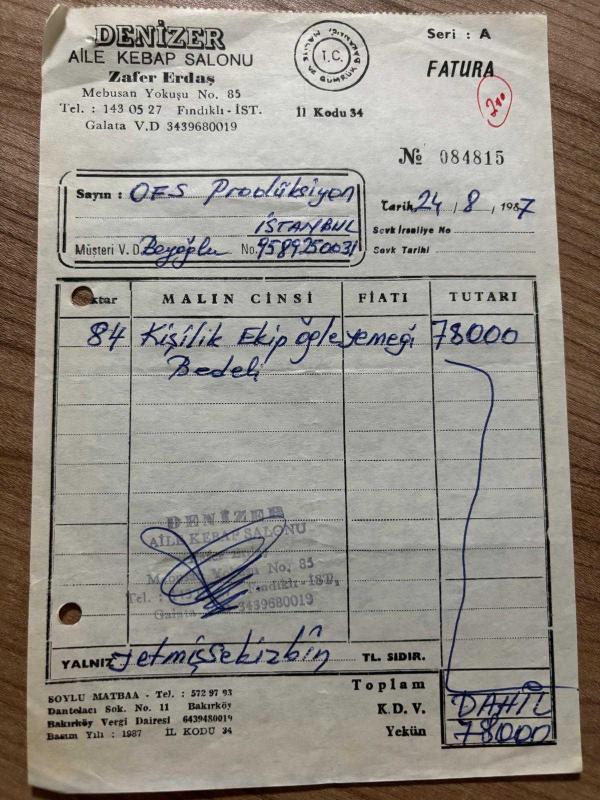 DENİZER
AİLE KEBAP SALONU
Zafer Erdaş
Mebusan Yokuşu No. 85
Tel. : 143 05 27 Fındıklı - İST.
Galata V.D 3439680019
T.C.
MALİYE VE GÜMRÜK BAKANLIĞI
İl Kodu 34
Seri : A
FATURA
No 084815
Sayın : OES Prodüksiyon
İSTANBUL
Müşteri V. D. Beyoğlu No. 9589250031
Tarih 24 / 8 / 1987
Sevk İrsaliye No
Sevk Tarihi
ktar MALIN CİNSİ FİATI TUTARI
84 Kişilik Ekip öğle yemeği 78000
Bedeli
DENİZER
AİLE KEBAP SALONU
Mebusan Yokuşu No. 85
Tel. : 143 Fındıklı - İST.
Galata 3439680019
YALNIZ Yetmişsekizbin TL. SIDIR.
Toplam
K.D.V. DAHİL
Yekün 78000
SOYLU MATBAA - Tel. : 572 97 93
Dantelacı Sok. No. 11 Bakırköy
Bakırköy Vergi Dairesi 6439480019
Basım Yılı : 1987 İL KODU 34